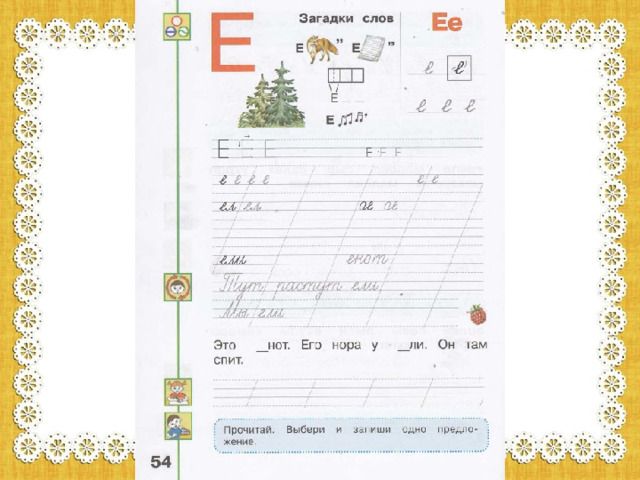 Е
Загадки слов
Ее
Е ” Е ”
е е
е е е
Е
Е ’
Е Е Е Е Е Е
е е е е е е
ел ел че че
ели енот
Тут растут ели
Мы ели
Это __нот. Его нора у __ли. Он там
спит.
Прочитай. Выбери и запиши одно предло-
жение.
54